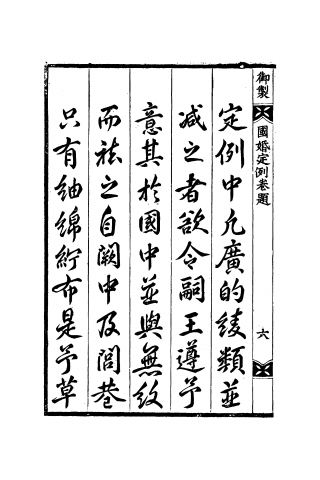 御製
國婚定例卷題
六
定例中凡廣的綾類並
减之者欲令嗣王遵予
意其於國中並與無紋
而祛之自闕中及閭巷
只有紬綿紵布是予草